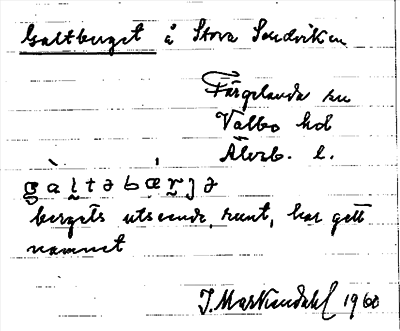 Galtberget å Stora Sundviken
Färgelanda sn
Valbo hd
Älvsb. l.
gàltəbǽrjə
bergets utseende, runt, har gett
namnet
J. Markendahl 1960